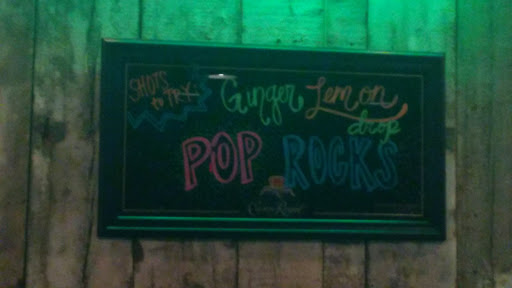 SHOTS to TRY:
Ginger Lemon drop
POP ROCKS
Crown Royal